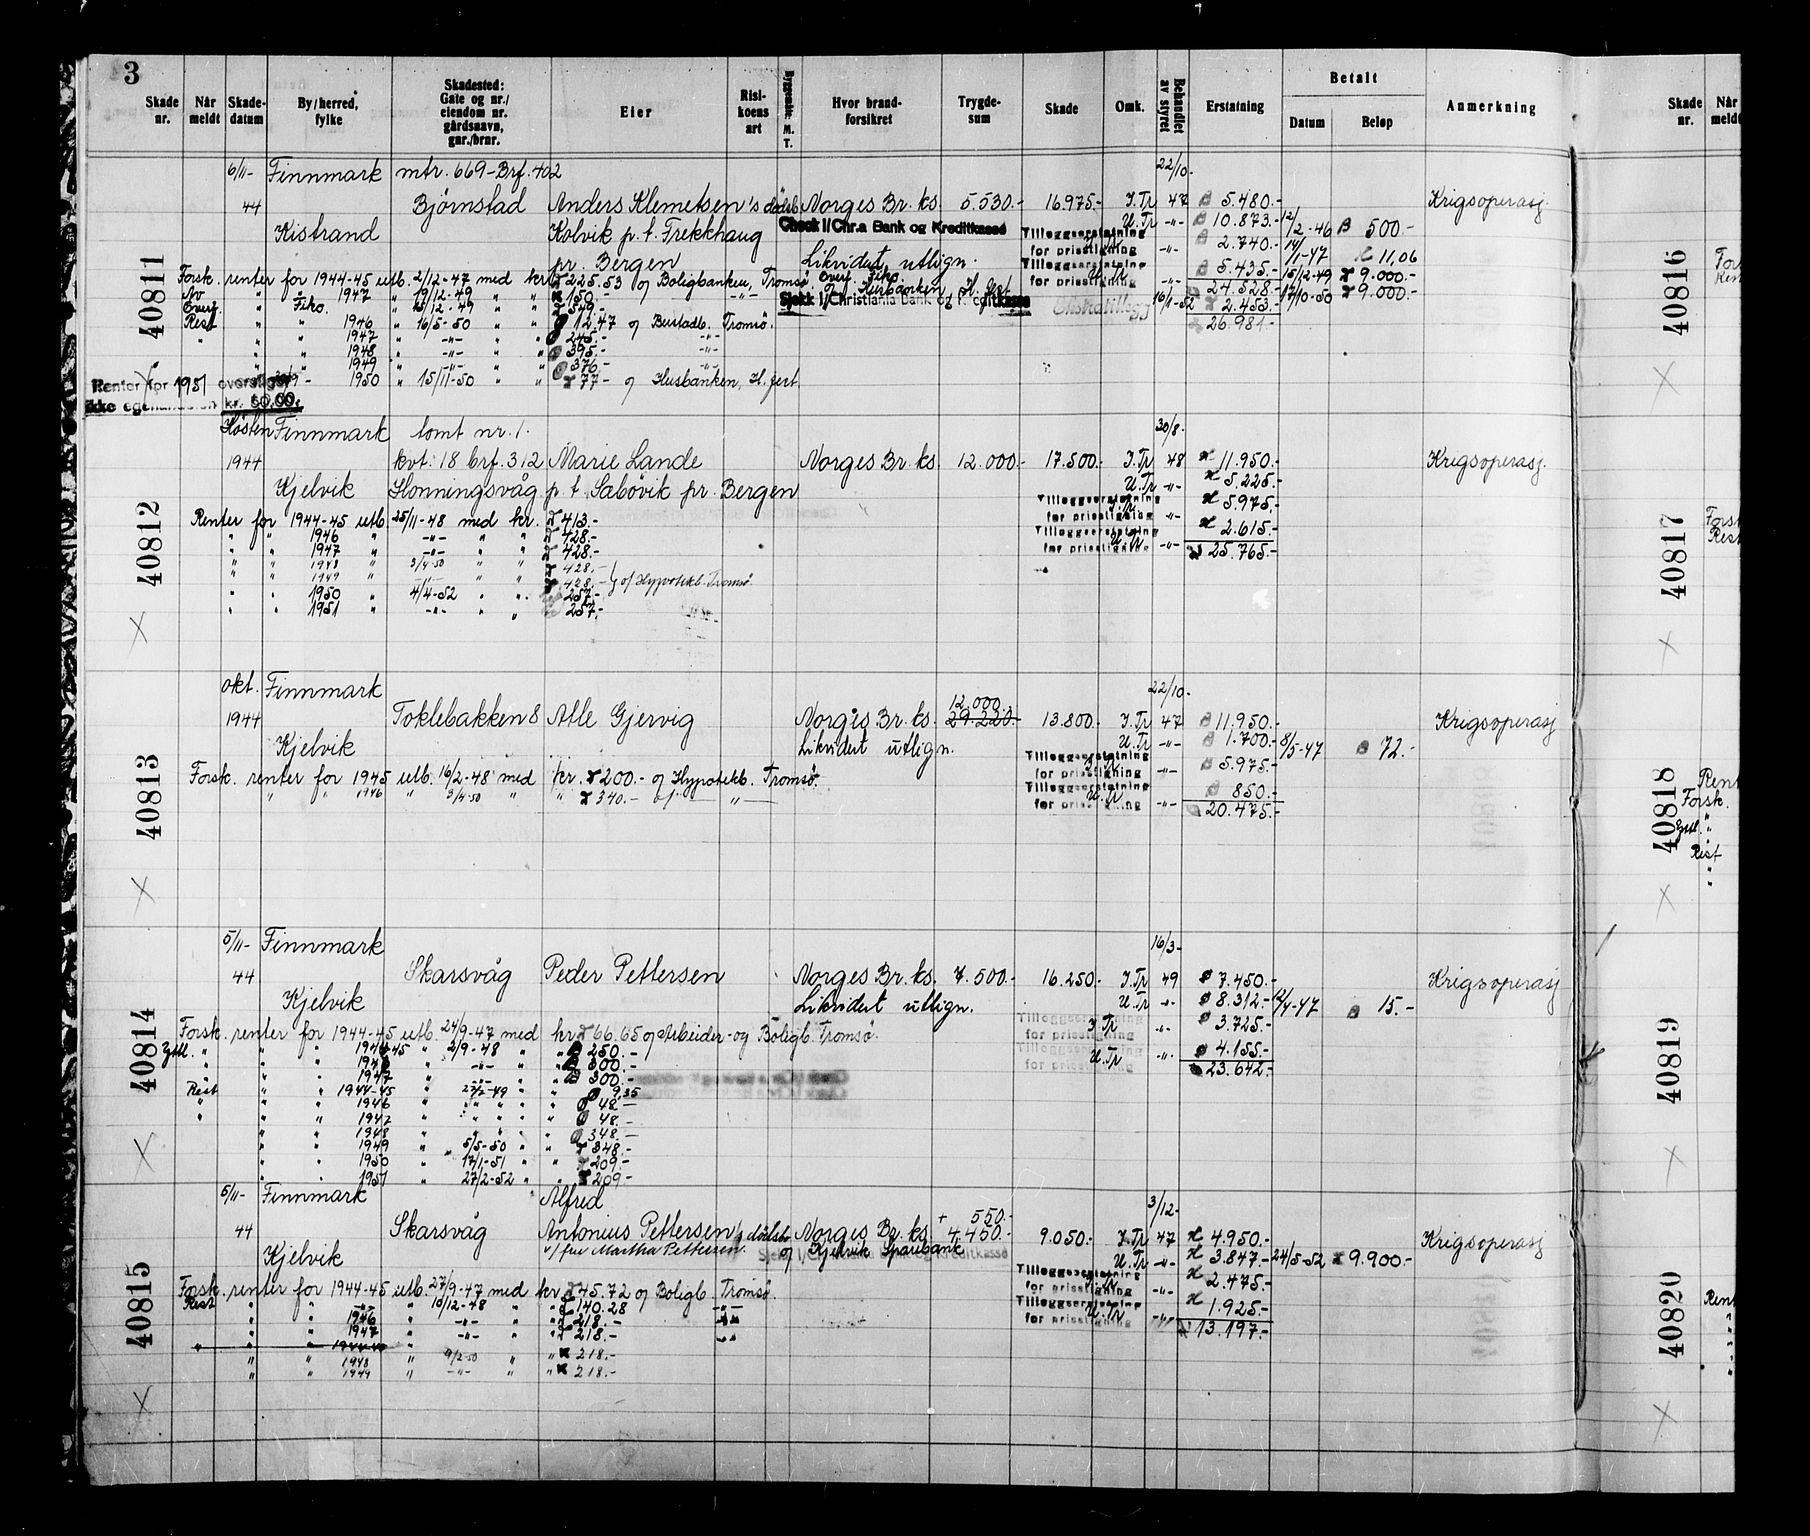 3
Skade nr.
Når meldt
Skade-datum
By/herred, fylke
Skadested: Gate og nr./ eiendom nr. gårdsnavn, gnr./brnr.
Eier
Risi-koens art
Byggemåte. M. T.
Hvor brand-forsikret
Trygde-sum
Skade
Omk.
Behandlet av styret
Erstatning
Betalt
Datum
Beløp
Anmerkning
Skade nr.
Når
40811
6/11- Finnmark mtr. 669-Brf. 402 22/10-
44 Bjørnstad Anders Klemetsen's dødsb. Norges Br. ks. 5.530.- 16.975.- I.Tr 47 5.480.- Krigsoperasj.
Kistrand Kolvik p.t. Trekkhaug Check I/Chr.a Bank og Kreditkasse Tilleggserstatning U.Tr -"- 10.873.- 12/2-46 500.-
for prisstigning -"- 2.740.- 14/1-47 11,06
pr. Bergen Likvidert utlign. Tilleggserstatning
for prisstigning -"- 5.435.- 15/2-49 9.000.-
Forsk. renter for 1944-45 utb. 2/12-47 med kr. 225.53 of Boligbanken, Tromsø. 24.528.- 17/10-50 9.000.-
Av " " 1947 " 19/12-49 " " 150.- -"- Sjekk I/Christiania Bank og Kreditkasse Ekstratillegg 16/1-52 2.453.-
Overf. " Fiko. " 15/12-49 " " 549.- 26.981.-
Rest " " 1946 " 16/5-50 " " 12.47 of Bustadb. Tromsø.
" " " 1947 " -"- " " 245.- -"-
" " 1948 " -"- " " 395.- -"-
" " 1949 " -"- " " 376.- -"-
1950 " 15/11-50 " " 77.- of Husbanken, H.fest
Renter for 1951 overstiger
ikke kr. 50,00.
40812
Høsten Finnmark tomt nr. 1. 30/8-
1944 kvt. 18 brf. 312 Marie Lande Norges Br. ks. 12.000.- 17.500.- I.Tr 48 11.950.- Krigsoperasj.
Kjelvik Honningsvåg p.t. Sabövik pr. Bergen U.Tr -"- 5.225.-
Tilleggserstatning
for prisstigning -"- 5.975.-
Renter for 1944-45 utb. 25/11-48 med kr. 413.- Tilleggserstatning 2.615.-
" " 1946 " -"- " " 428.- for prisstigning -"- 25.765.-
" " 1947 " -"- " " 428.-
" " 1948 " 3/4-50 " " 428.-
" " 1949 " -"- " " 428.- of Hypotekb. Tromsø
" " 1950 " 4/4-52 " " 257.-
" " 1951 " -"- " " 257.-
40813
okt. Finnmark 12.000.- 22/10-
1944 Toklebakken 8 Atle Gjervig Norges Br. ks. 29.220.- 13.800.- I.Tr 47 11.950.- Krigsoperasj
Kjelvik Likvidert utlign. U.Tr -"- 1.700.- 8/5-47 72.-
Tilleggserstatning
for prisstigning -"- 5.975.-
Forsk. renter for 1945 utb. 16/2-48 med kr. 200.- of Hypotekb. Tromsø. Tilleggserstatning U.Tr 850.-
" " 1946 " 3/4-50 " " 340.- of -"- for prisstigning -"- 20.475.-
40814
5/11- Finnmark 16/3-
44 Skarsvåg Peder Pettersen Norges Br. ks. 7.500.- 16.250.- I.Tr 49 7.450.- Krigsoperasj
Kjelvik Likvidert utlign. U.Tr -"- 8.312.- 12/4-47 15.-
Tilleggserstatning
for prisstigning I.Tr -"- 3.725.-
Forsk. renter for 1944-45 utb. 24/9-47 med kr. 66.65 of Arbeider-og Boligb. Tromsø. Tilleggserstatning U.Tr -"- 4.155.-
for prisstigning 23.642.-
" " 1944-45 " 2/9-48 " " 250.-
" " 1946 " -"- " " 300.-
" " 1947 " -"- " " 300.-
Rest " " 1944-45 " 22/2-49 " " 9,35
" " 1946 " " " " 48.-
" " 1947 " " " " 48.-
" " 1948 " " " " 348.-
" " 1949 " 5/5-50 " " 348.-
" " 1950 " 17/1-51 " " 209.-
" " 1951 " 27/2-52 " " 209.-
40815
5/11- Finnmark Alfred + 550.- 3/12-
44 Skarsvåg Antonius Pettersen's dødsbo Norges Br. ks. 4.450.- 9.050.- I.Tr 47 4.950.- Krigsoperasj
Kjelvik v/fru Martha Pettersen. of Kjelvik Sparebank U.Tr -"- 3.847.- 24/5-52 9.900.-
Tilleggserstatning
for prisstigning -"- 2.475.-
Forsk. renter for 1944-45 utb. 27/9-47 med kr. 45.72 of Boligb. Tromsø. Tilleggserstatning U.Tr 1.925.-
Rest " " -"- " 10/12-48 " " 140.28 -"- for prisstigning 13.197.-
" " 1946 " -"- " " 218.- -"-
" " 1947 " -"- " " 218.- -"-
" " 1944-45 "
" " 1948 " 9/2-50 " " 218.-
" " 1949 " -"- " " 218.-
40816
40817
Rest
40818
Forsk.
Rest
40819
40820